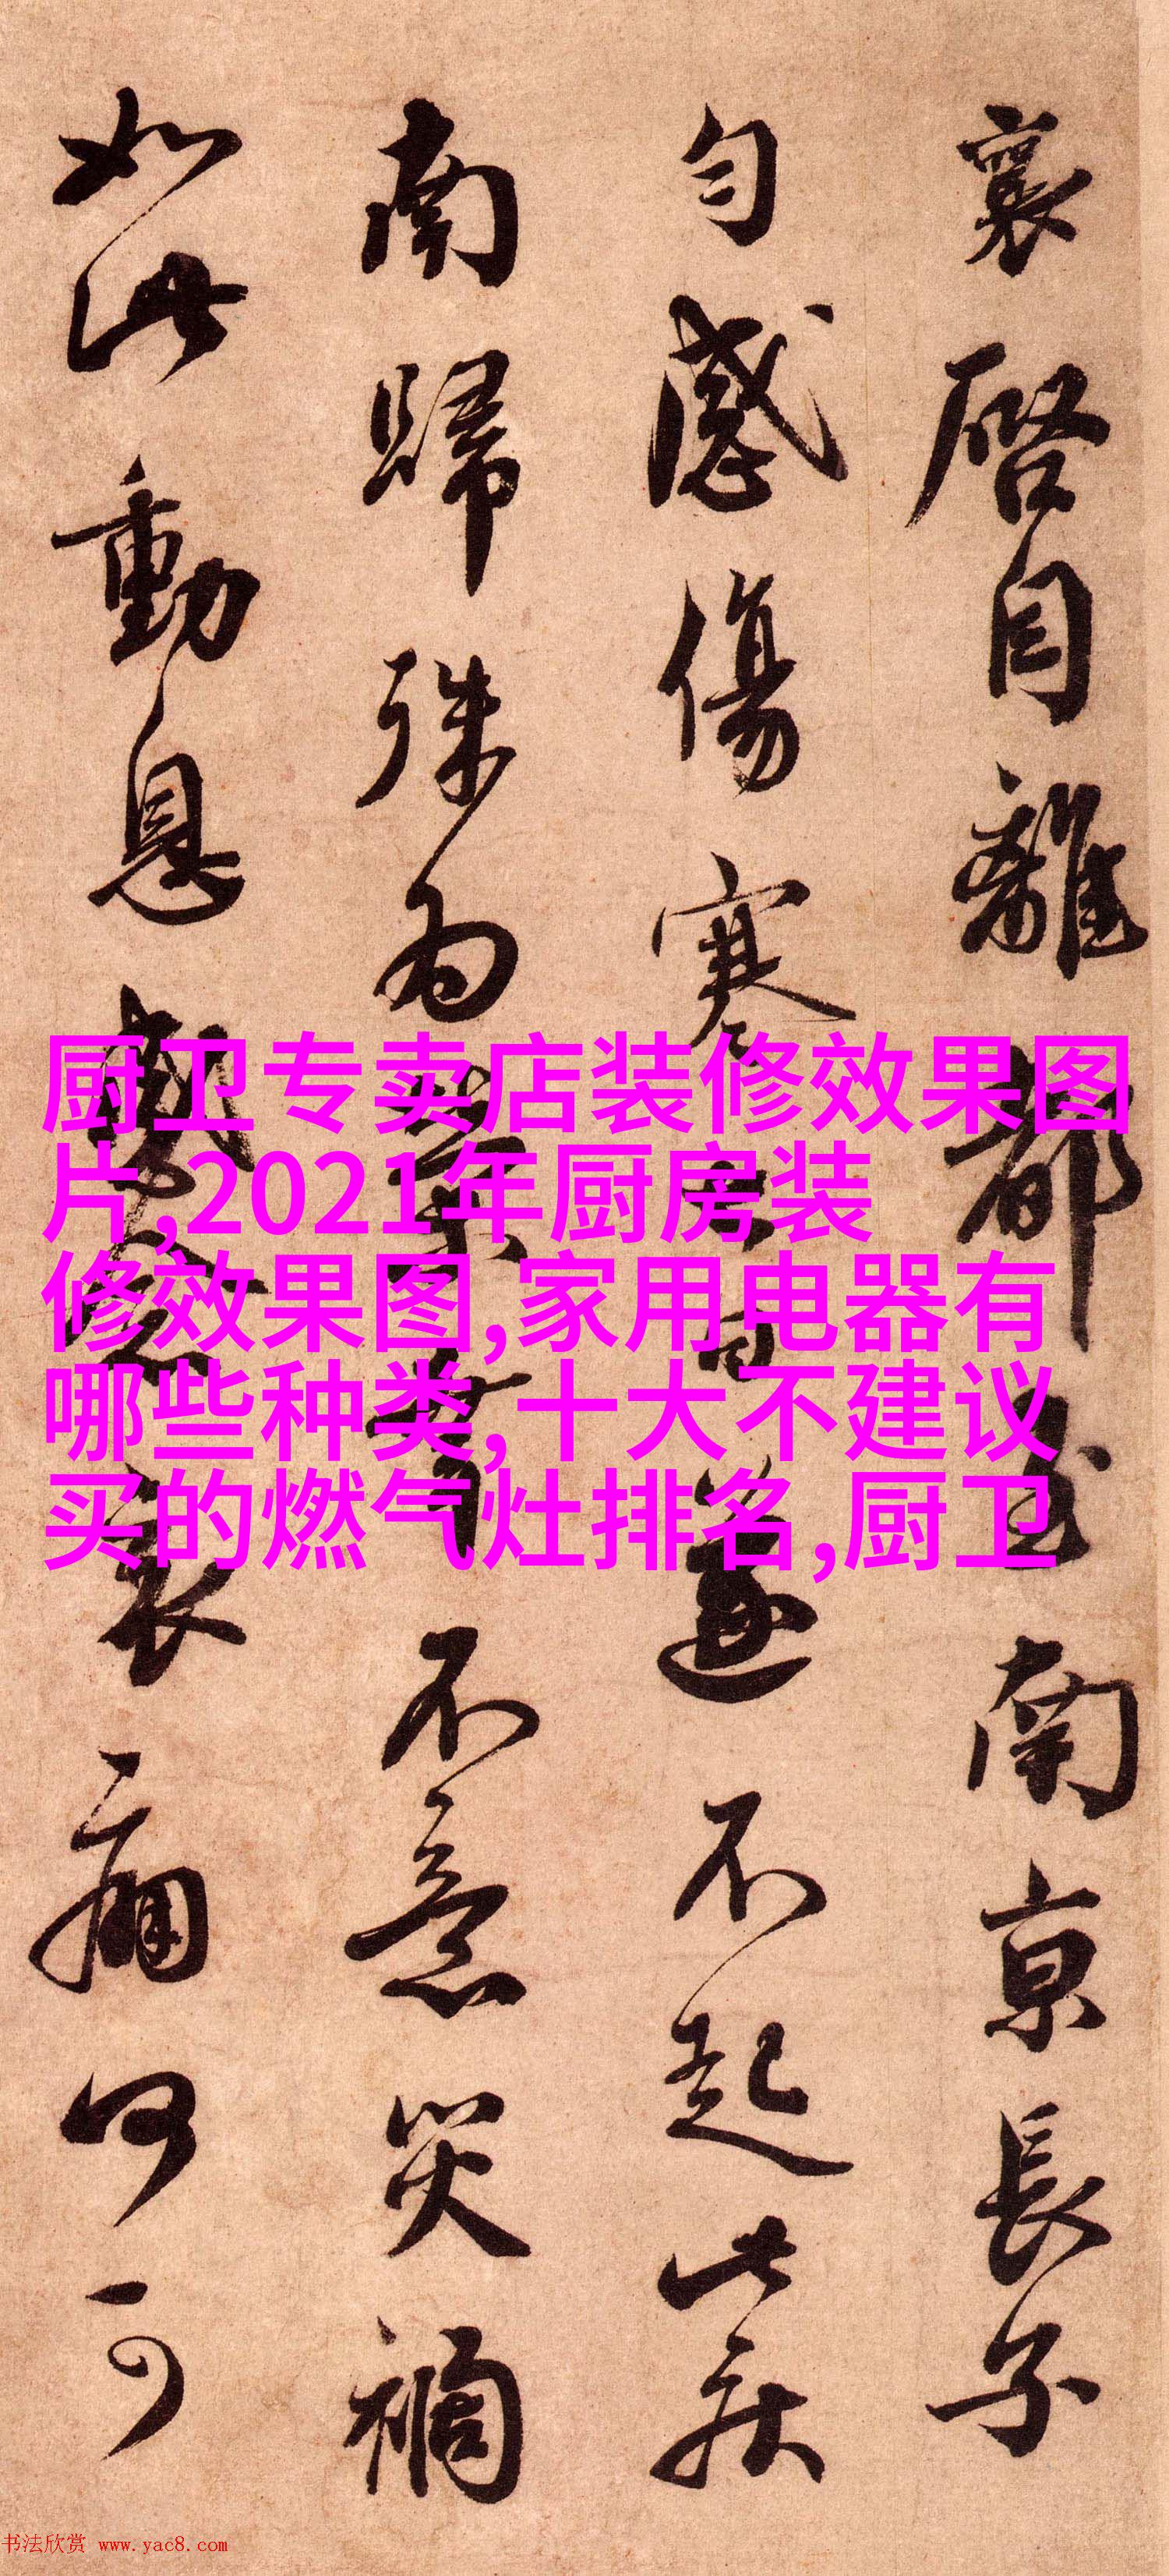 襄啓自離都至南京長子
匀感傷寒七日遂不起此疾
南歸殊為榮幸不意災禍
如此動息感念哀痛何可
厨卫专卖店装修效果图
片,2021年厨房装
修效果图,家用电器有
哪些种类,十大不建议
买的燃气灶排名,厨卫
书法欣赏 www.yac8.com